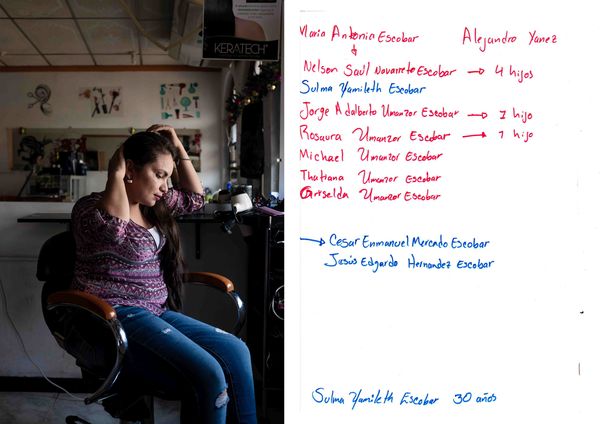 KERATECH
Maria Antonia Escobar Alejandro Yanez
Nelson Saúl Navarrete Escobar → 4 hijos
Sulma Yamileth Escobar
Jorge Adalberto Umanzor Escobar → 1 hijo
Rosaura Umanzor Escobar → 1 hijo
Michael Umanzor Escobar
Thatiana Umanzor Escobar
Griselda Umanzor Escobar
→ Cesar Enmanuel Mercado Escobar
Jesús Edgardo Hernandez Escobar
Sulma Yamileth Escobar 30 años